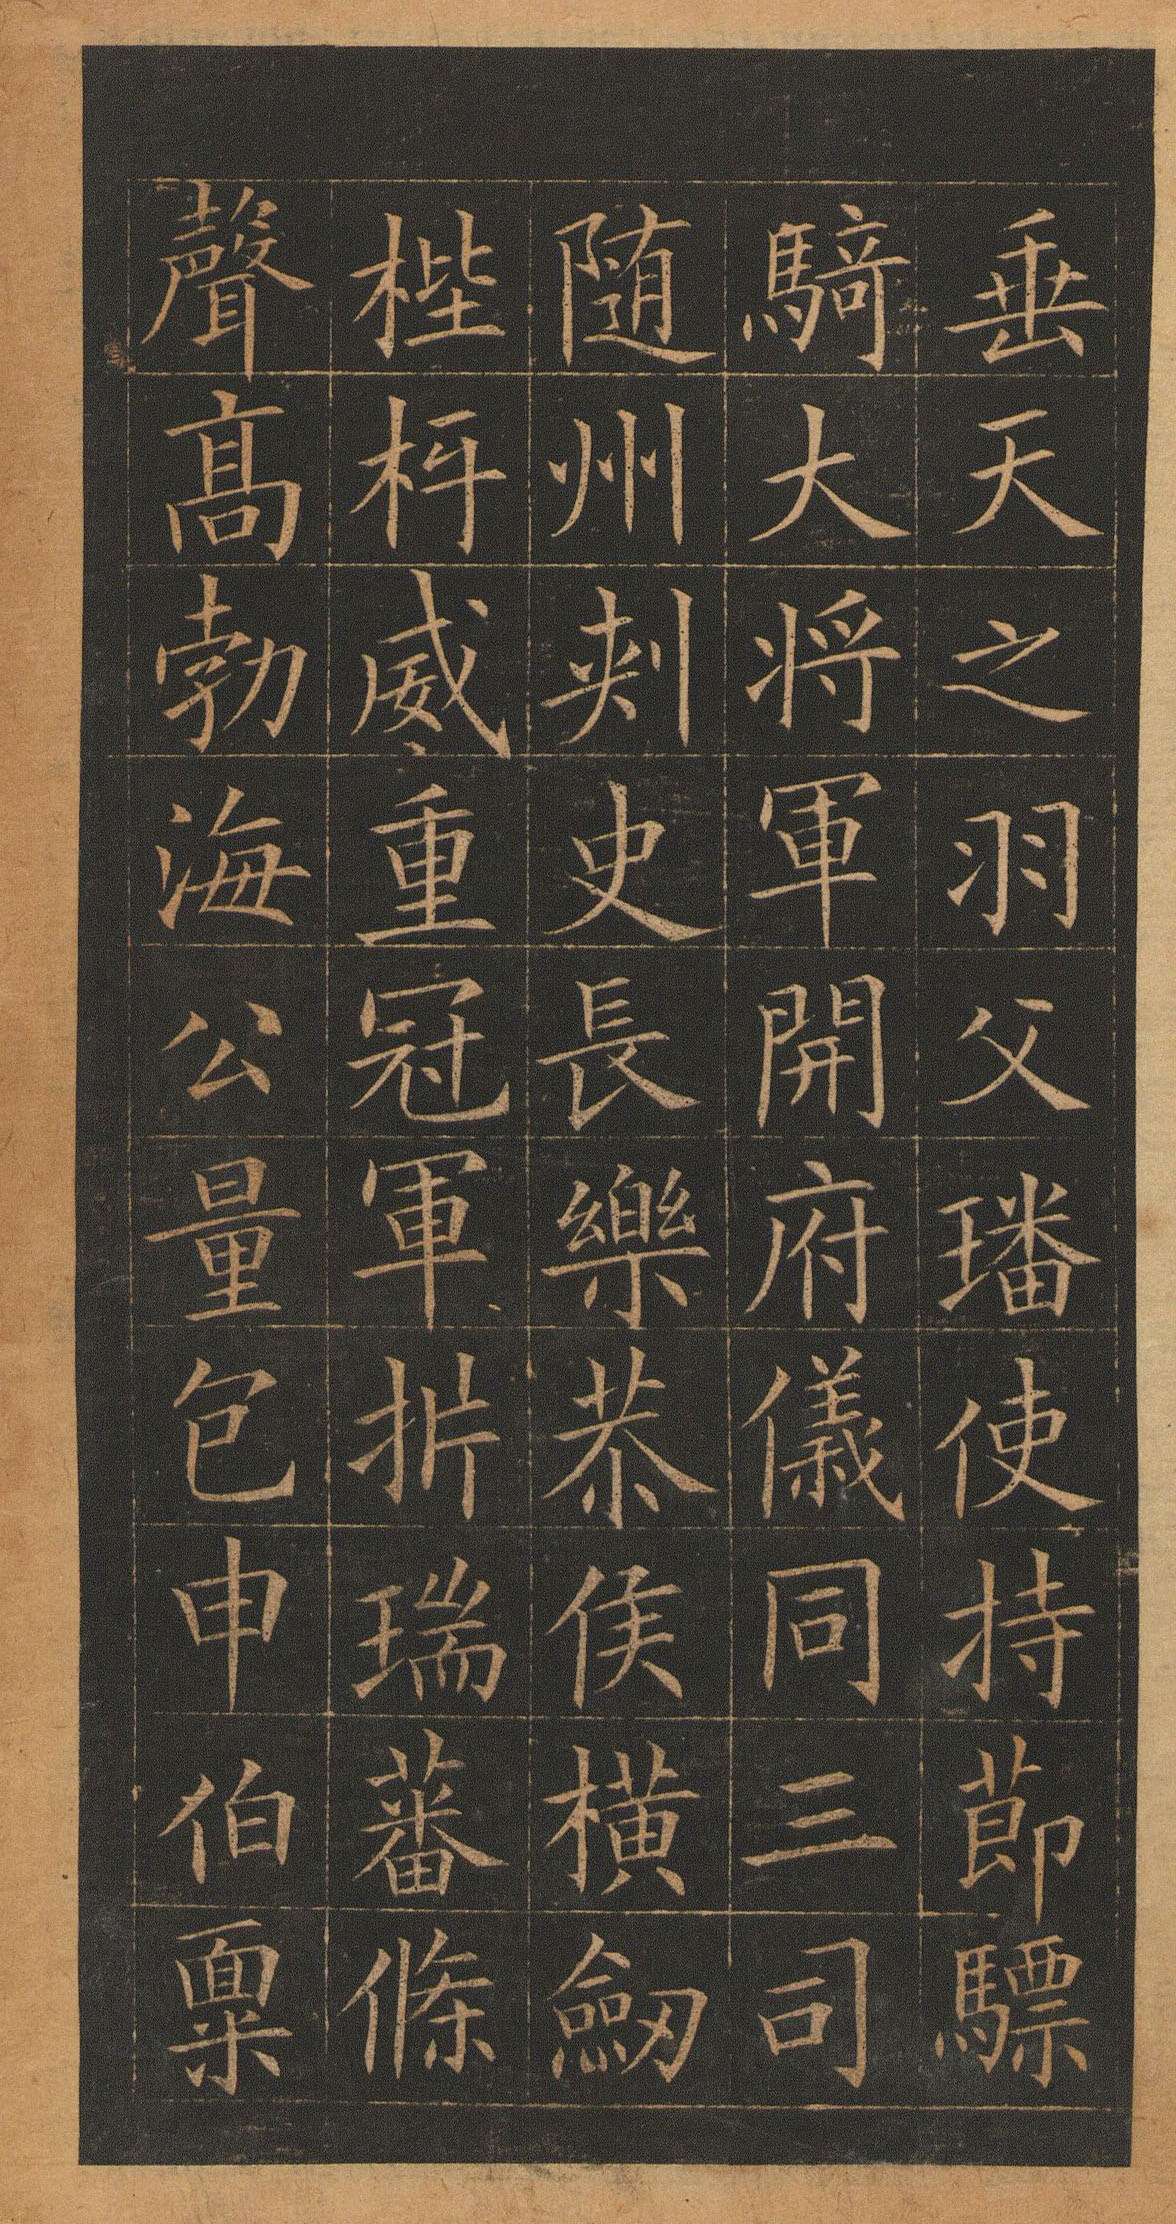 垂天之羽父璠使持節驃
騎大將軍開府儀同三司
随州刾史長樂恭侯橫劒
梐枑威重冠軍折瑞蕃條
聲髙勃海公量包申伯禀